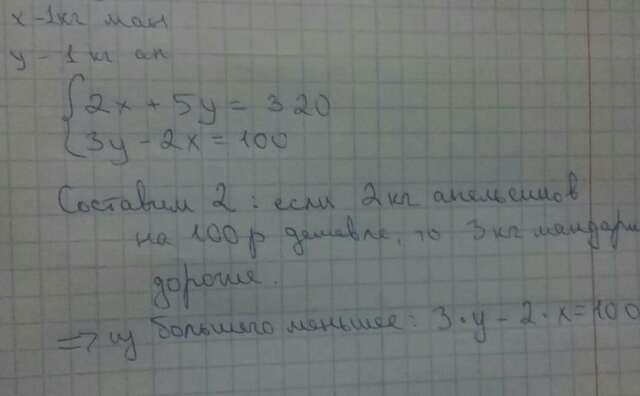 x - 1кг ман
y - 1 кг ап
2x + 5y = 320
3y - 2x = 100
Составим 2: если 2кг апельсинов
на 100р дешевле, то 3кг мандари
дороже.
=> из большего меньшее: 3·y - 2·x = 100